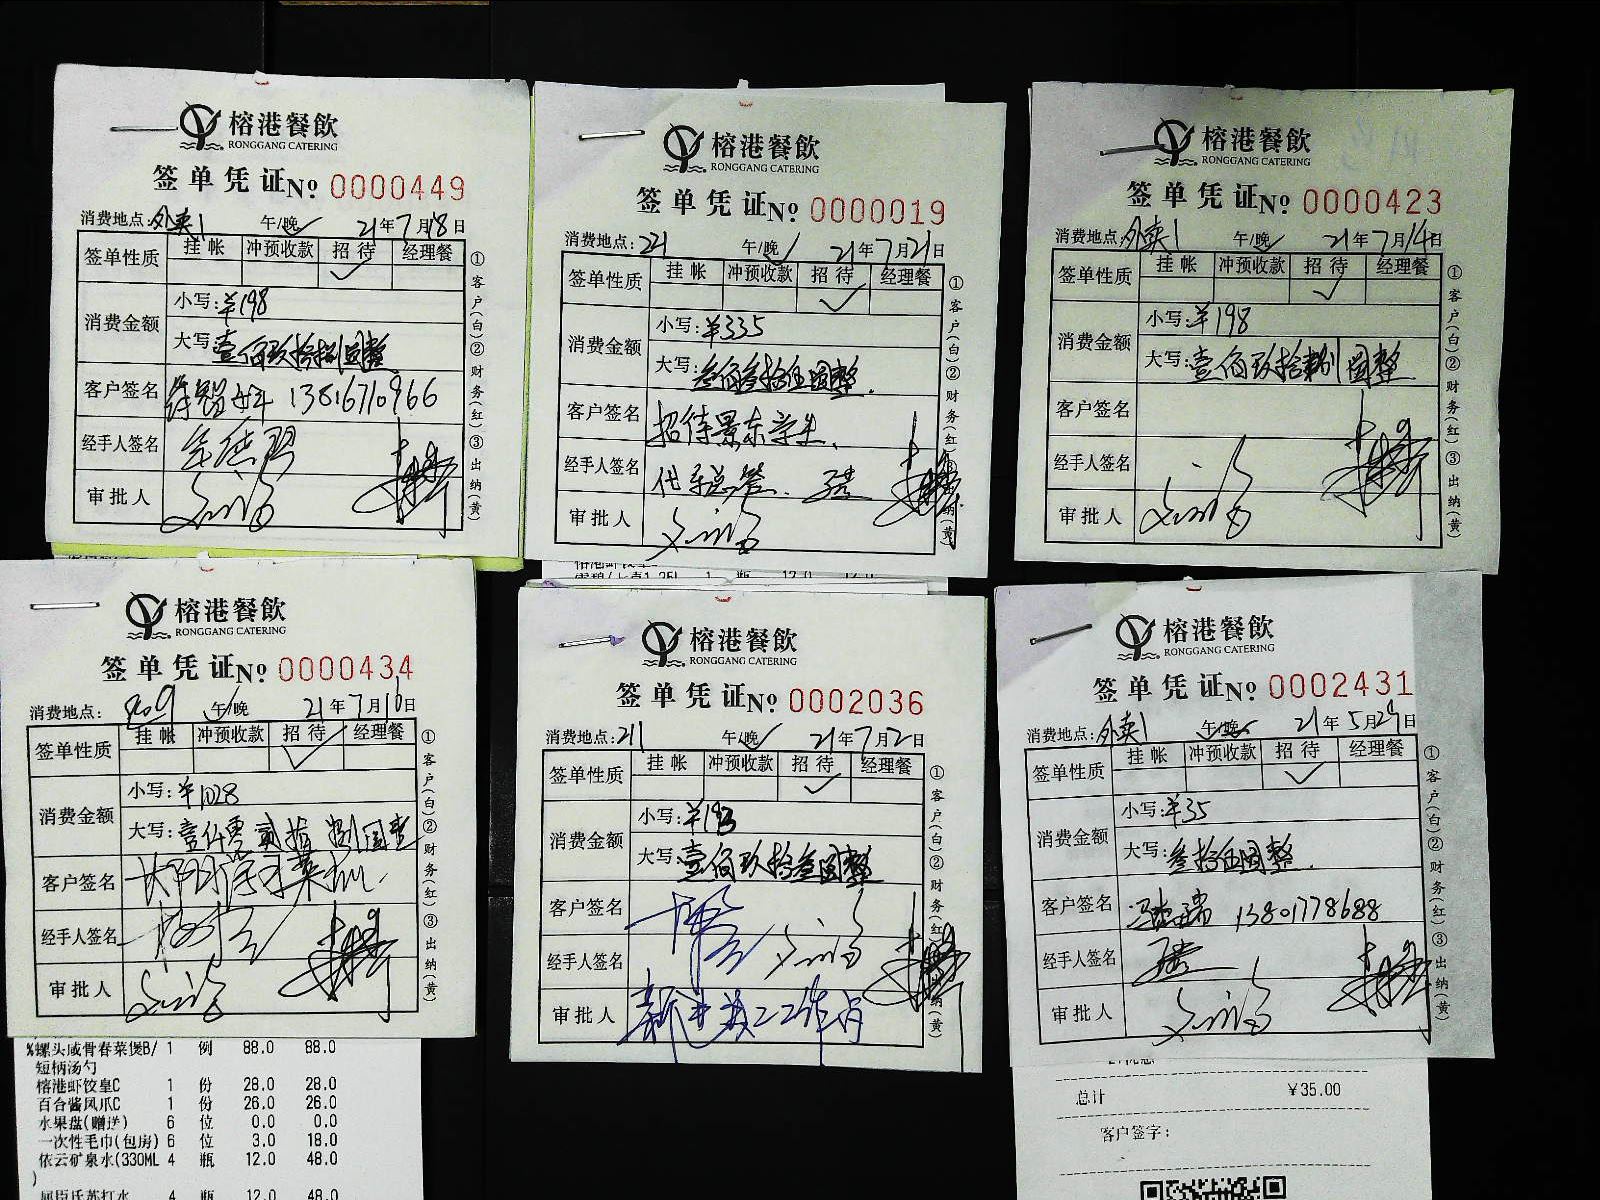 榕港餐飲
RONGGANG CATERING
签单凭证№ 0000449
消费地点:外卖1 午/晚✓ 21年7月18日
签单性质 挂帐 冲预收款 招待 经理餐
✓
消费金额 小写:¥198
大写:壹佰玖拾捌圆整
客户签名 13816710966
经手人签名
审批人
①客户(白)②财务(红)③出纳(黄)
榕港餐飲
RONGGANG CATERING
签单凭证№ 0000019
消费地点:221 午/晚✓ 21年7月21日
签单性质 挂帐 冲预收款 招待 经理餐
✓
消费金额 小写:¥335
大写:叁佰叁拾伍圆整.
客户签名 招待景东学生.
经手人签名
审批人
①客户(白)②财务(红)
纳(黄)
榕港餐飲
RONGGANG CATERING
签单凭证№ 0000423
消费地点:外卖1 午/晚✓ 21年7月14日
签单性质 挂帐 冲预收款 招待 经理餐
✓
消费金额 小写:¥198
大写:壹佰玖拾捌圆整
客户签名
经手人签名
审批人
①客户(白)②财务(红)③出纳(黄)
榕港餐飲
RONGGANG CATERING
签单凭证№ 0000434
消费地点: 午/晚 21年7月16日
签单性质 挂帐 冲预收款 招待 经理餐
✓
消费金额 小写:¥1028
大写:壹仟零贰拾捌圆整
客户签名
经手人签名
审批人
①客户(白)②财务(红)③出纳(黄)
%螺头咸骨春菜煲B/ 1 例 88.0 88.0
短柄汤勺
榕港虾饺皇C 1 份 28.0 28.0
百合酱凤爪C 1 份 26.0 26.0
水果盘(赠送) 6 位 0.0 0.0
一次性毛巾(包房) 6 位 3.0 18.0
依云矿泉水(330ML 4 瓶 12.0 48.0
)
屈臣氏苏打水 4 瓶 12.0 48.0
榕港餐飲
RONGGANG CATERING
签单凭证№ 0002036
消费地点:211 午/晚✓ 21年7月2日
签单性质 挂帐 冲预收款 招待 经理餐
✓
消费金额 小写:¥193
大写:壹佰玖拾叁圆整
客户签名
经手人签名
审批人
①客户(白)②财务(红
纳(黄)
榕港餐飲
RONGGANG CATERING
签单凭证№ 0002431
消费地点:外卖1 午/晚 21年5月29日
签单性质 挂帐 冲预收款 招待 经理餐
✓
消费金额 小写:¥35
大写:叁拾伍圆整.
客户签名 13801778688
经手人签名
审批人
①客户(白)②财务(红)③出纳(黄)
总计 ¥35.00
客户签字: